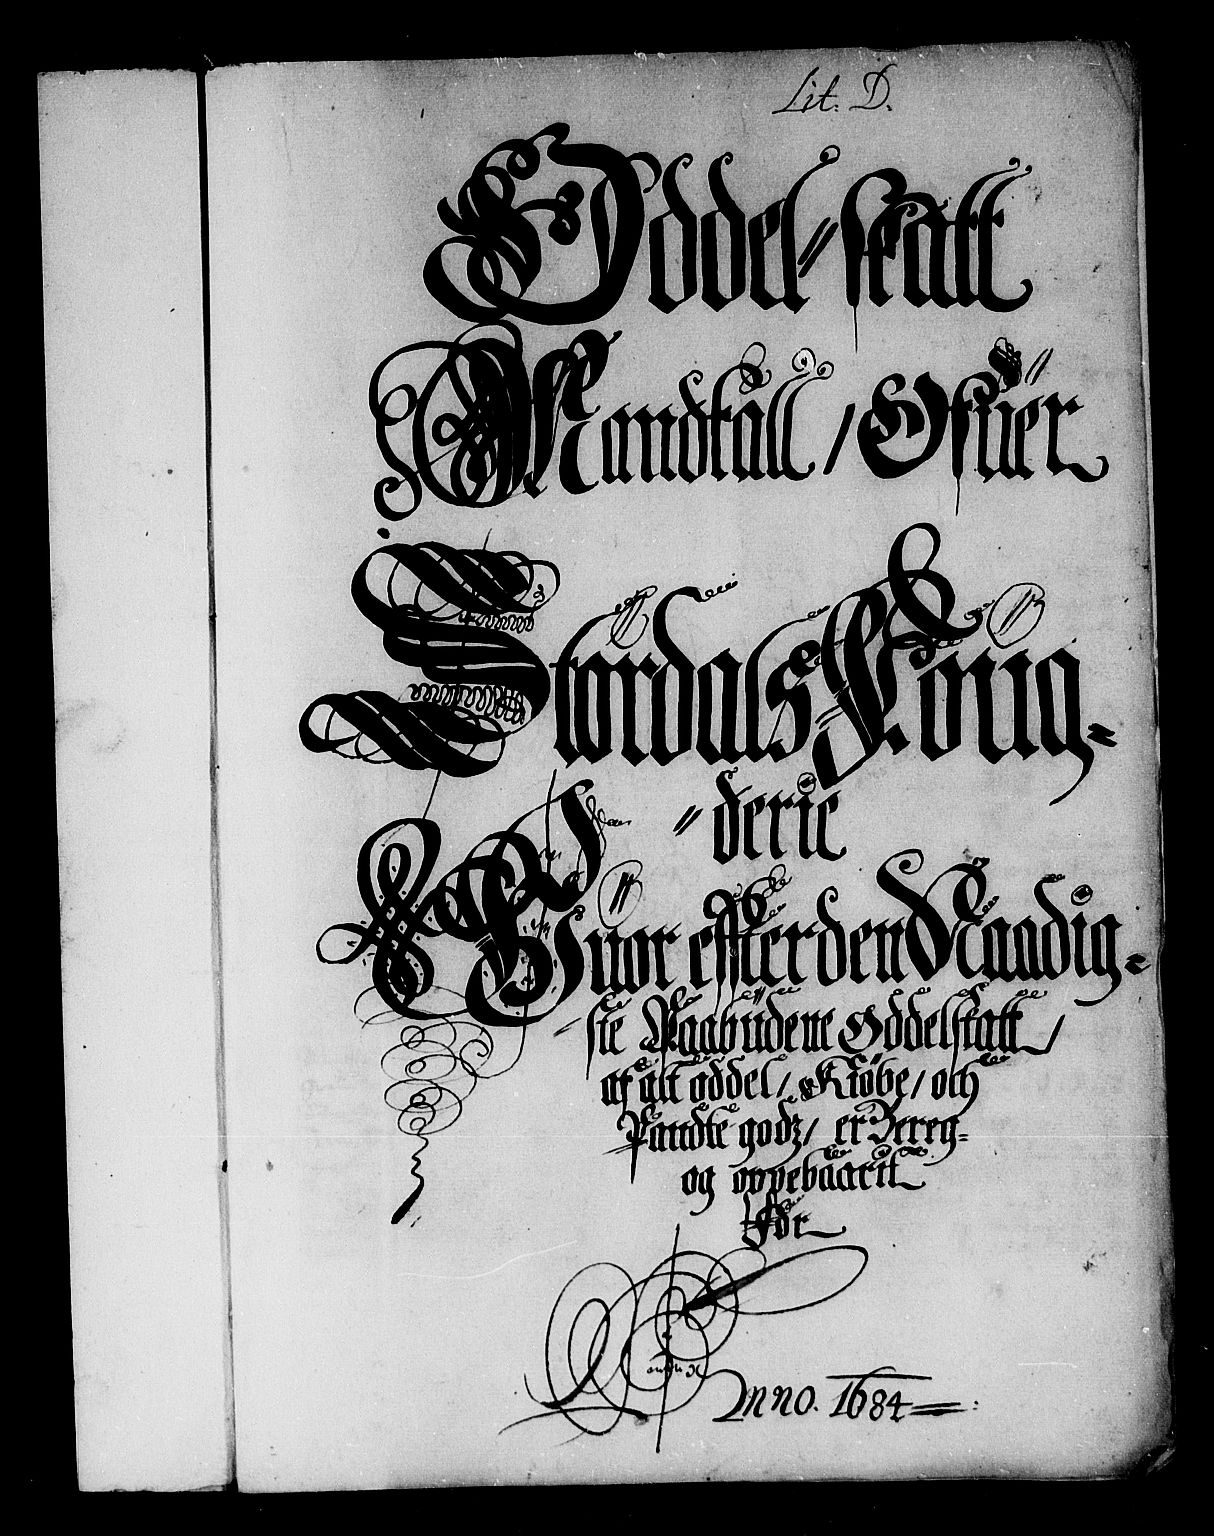 Lit. D.
Oddel-skatt
Mandtall / Ofuer
Stordals Föug-
-derie
Huor effter den Naadig-
-ste Paabudene Oddelskatt /
af alt oddel / Kiöbe / och
Pandte godz / er Bereg-
og oppebaarit
För
Anno. 1684